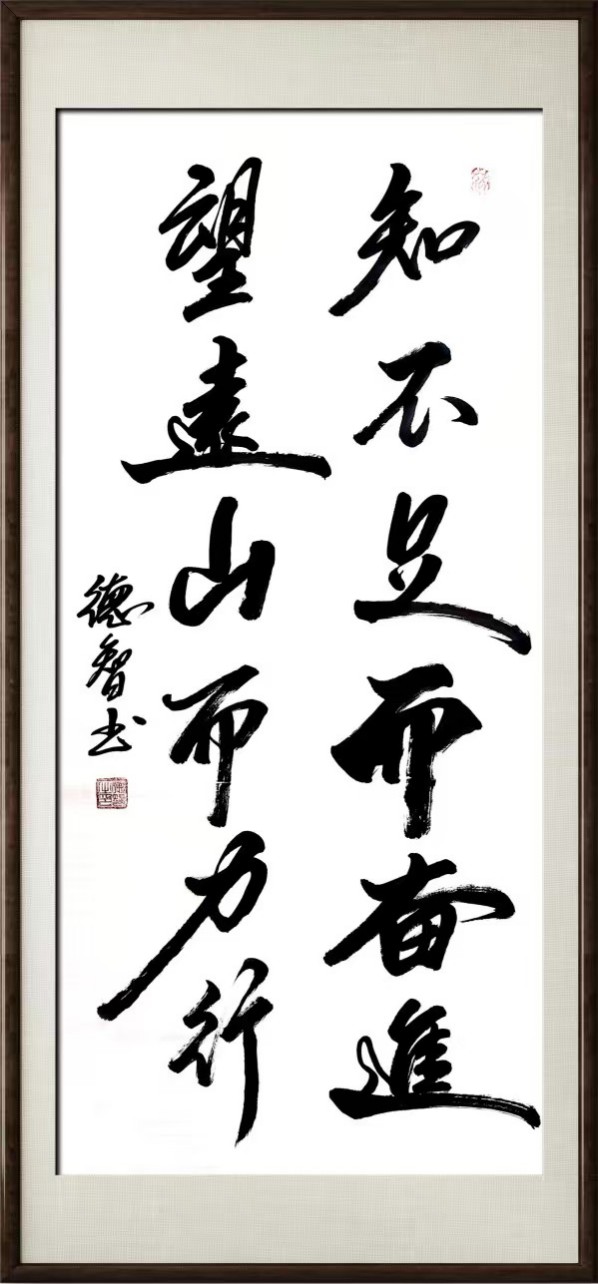 知不足而奋進
望遠山而力行
德智书